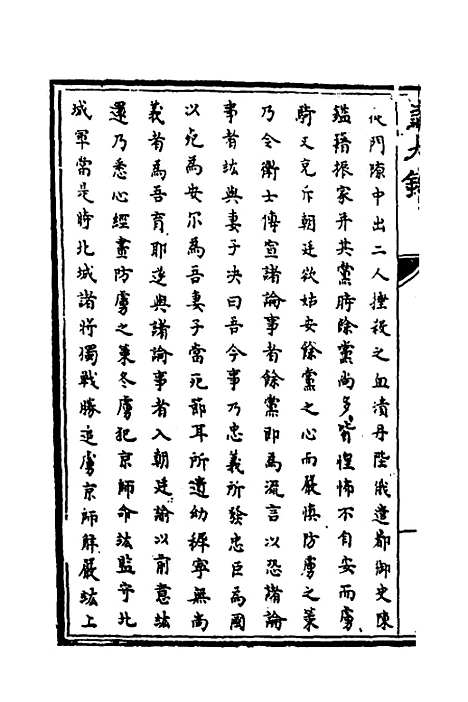 從門隙中出二人捶殺之血漬丹陛俄遣都御史陳
鎰籍振家并其黨時餘黨尚多皆惶怖不自安而虜
騎又充斥朝廷欲姑安餘黨之心而嚴慎防虜之策
乃令衛士傳宣諸論事者餘黨即為流言以恐諸論
事者竑與妻子决曰吾今事乃忠義所發忠臣為國
以死為安尔為吾妻子當死節耳所遺幼稺寧無尚
義者為吾育耶迨與諸論事者入朝廷諭以前意竑
還乃悉心經畫防虜之策冬虜犯京師命竑監守北
城軍當是時北城諸将獨戰勝追虜京師解嚴竑上